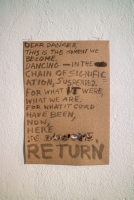 DEAR DANCER,
THIS IS THE MOMENT WE
BECOME.
DANCING — IN THE
CHAIN OF SIGNIFIC
ATION, SUSPENDED.
FOR WHAT IT WERE,
WHAT WE ARE.
FOR WHAT IT COULD
HAVE BEEN,
NOW,
HERE
RETURN